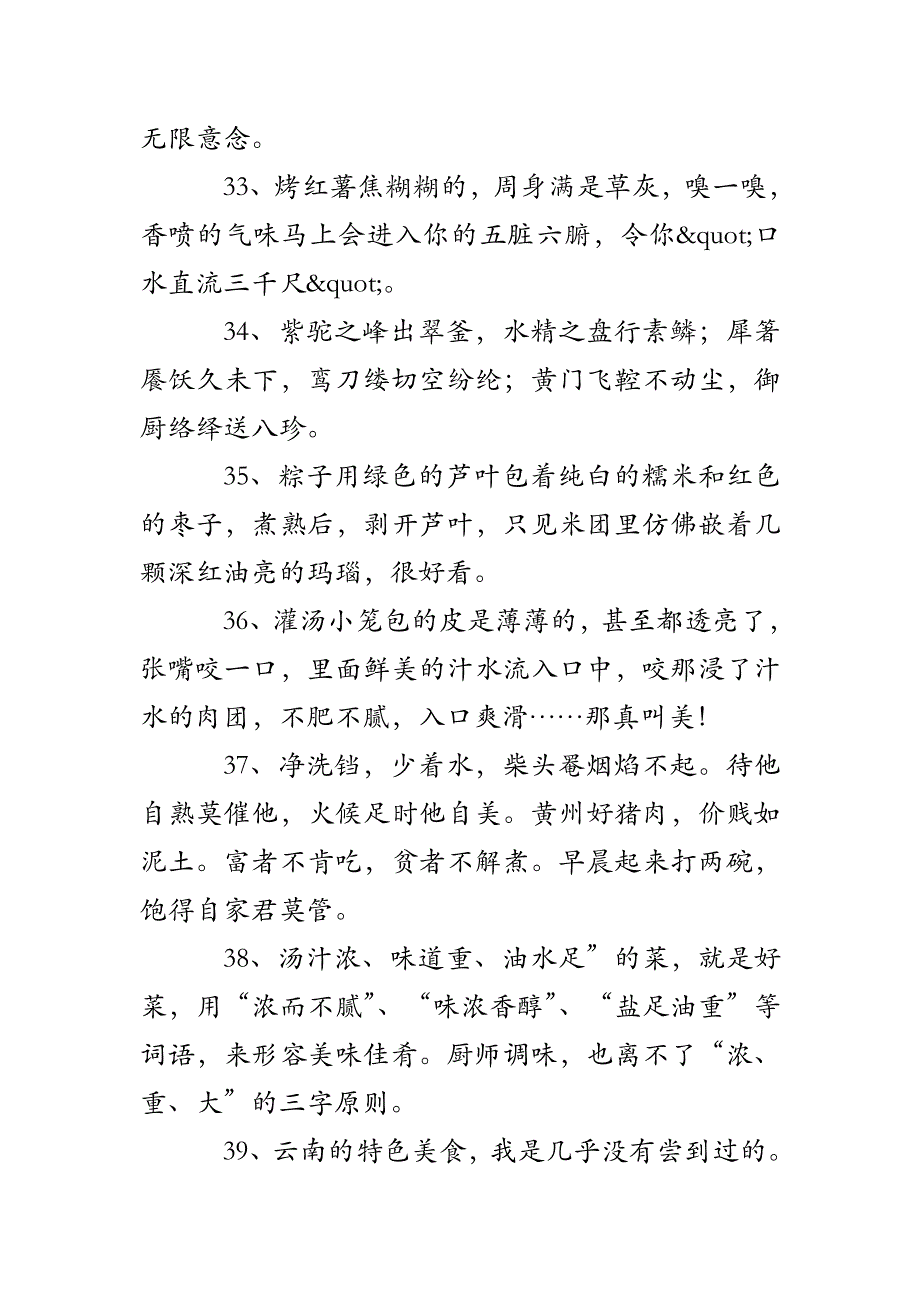 无限意念。
33、烤红薯焦糊糊的，周身满是草灰，嗅一嗅，
香喷的气味马上会进入你的五脏六腑，令你&quot;口
水直流三千尺&quot;。
34、紫驼之峰出翠釜，水精之盘行素鳞；犀箸
餍饫久未下，鸾刀缕切空纷纶；黄门飞鞚不动尘，御
厨络绎送八珍。
35、粽子用绿色的芦叶包着纯白的糯米和红色
的枣子，煮熟后，剥开芦叶，只见米团里仿佛嵌着几
颗深红油亮的玛瑙，很好看。
36、灌汤小笼包的皮是薄薄的，甚至都透亮了，
张嘴咬一口，里面鲜美的汁水流入口中，咬那浸了汁
水的肉团，不肥不腻，入口爽滑……那真叫美！
37、净洗铛，少着水，柴头罨烟焰不起。待他
自熟莫催他，火候足时他自美。黄州好猪肉，价贱如
泥土。富者不肯吃，贫者不解煮。早晨起来打两碗，
饱得自家君莫管。
38、汤汁浓、味道重、油水足”的菜，就是好
菜，用“浓而不腻”、“味浓香醇”、“盐足油重”等
词语，来形容美味佳肴。厨师调味，也离不了“浓、
重、大”的三字原则。
39、云南的特色美食，我是几乎没有尝到过的。